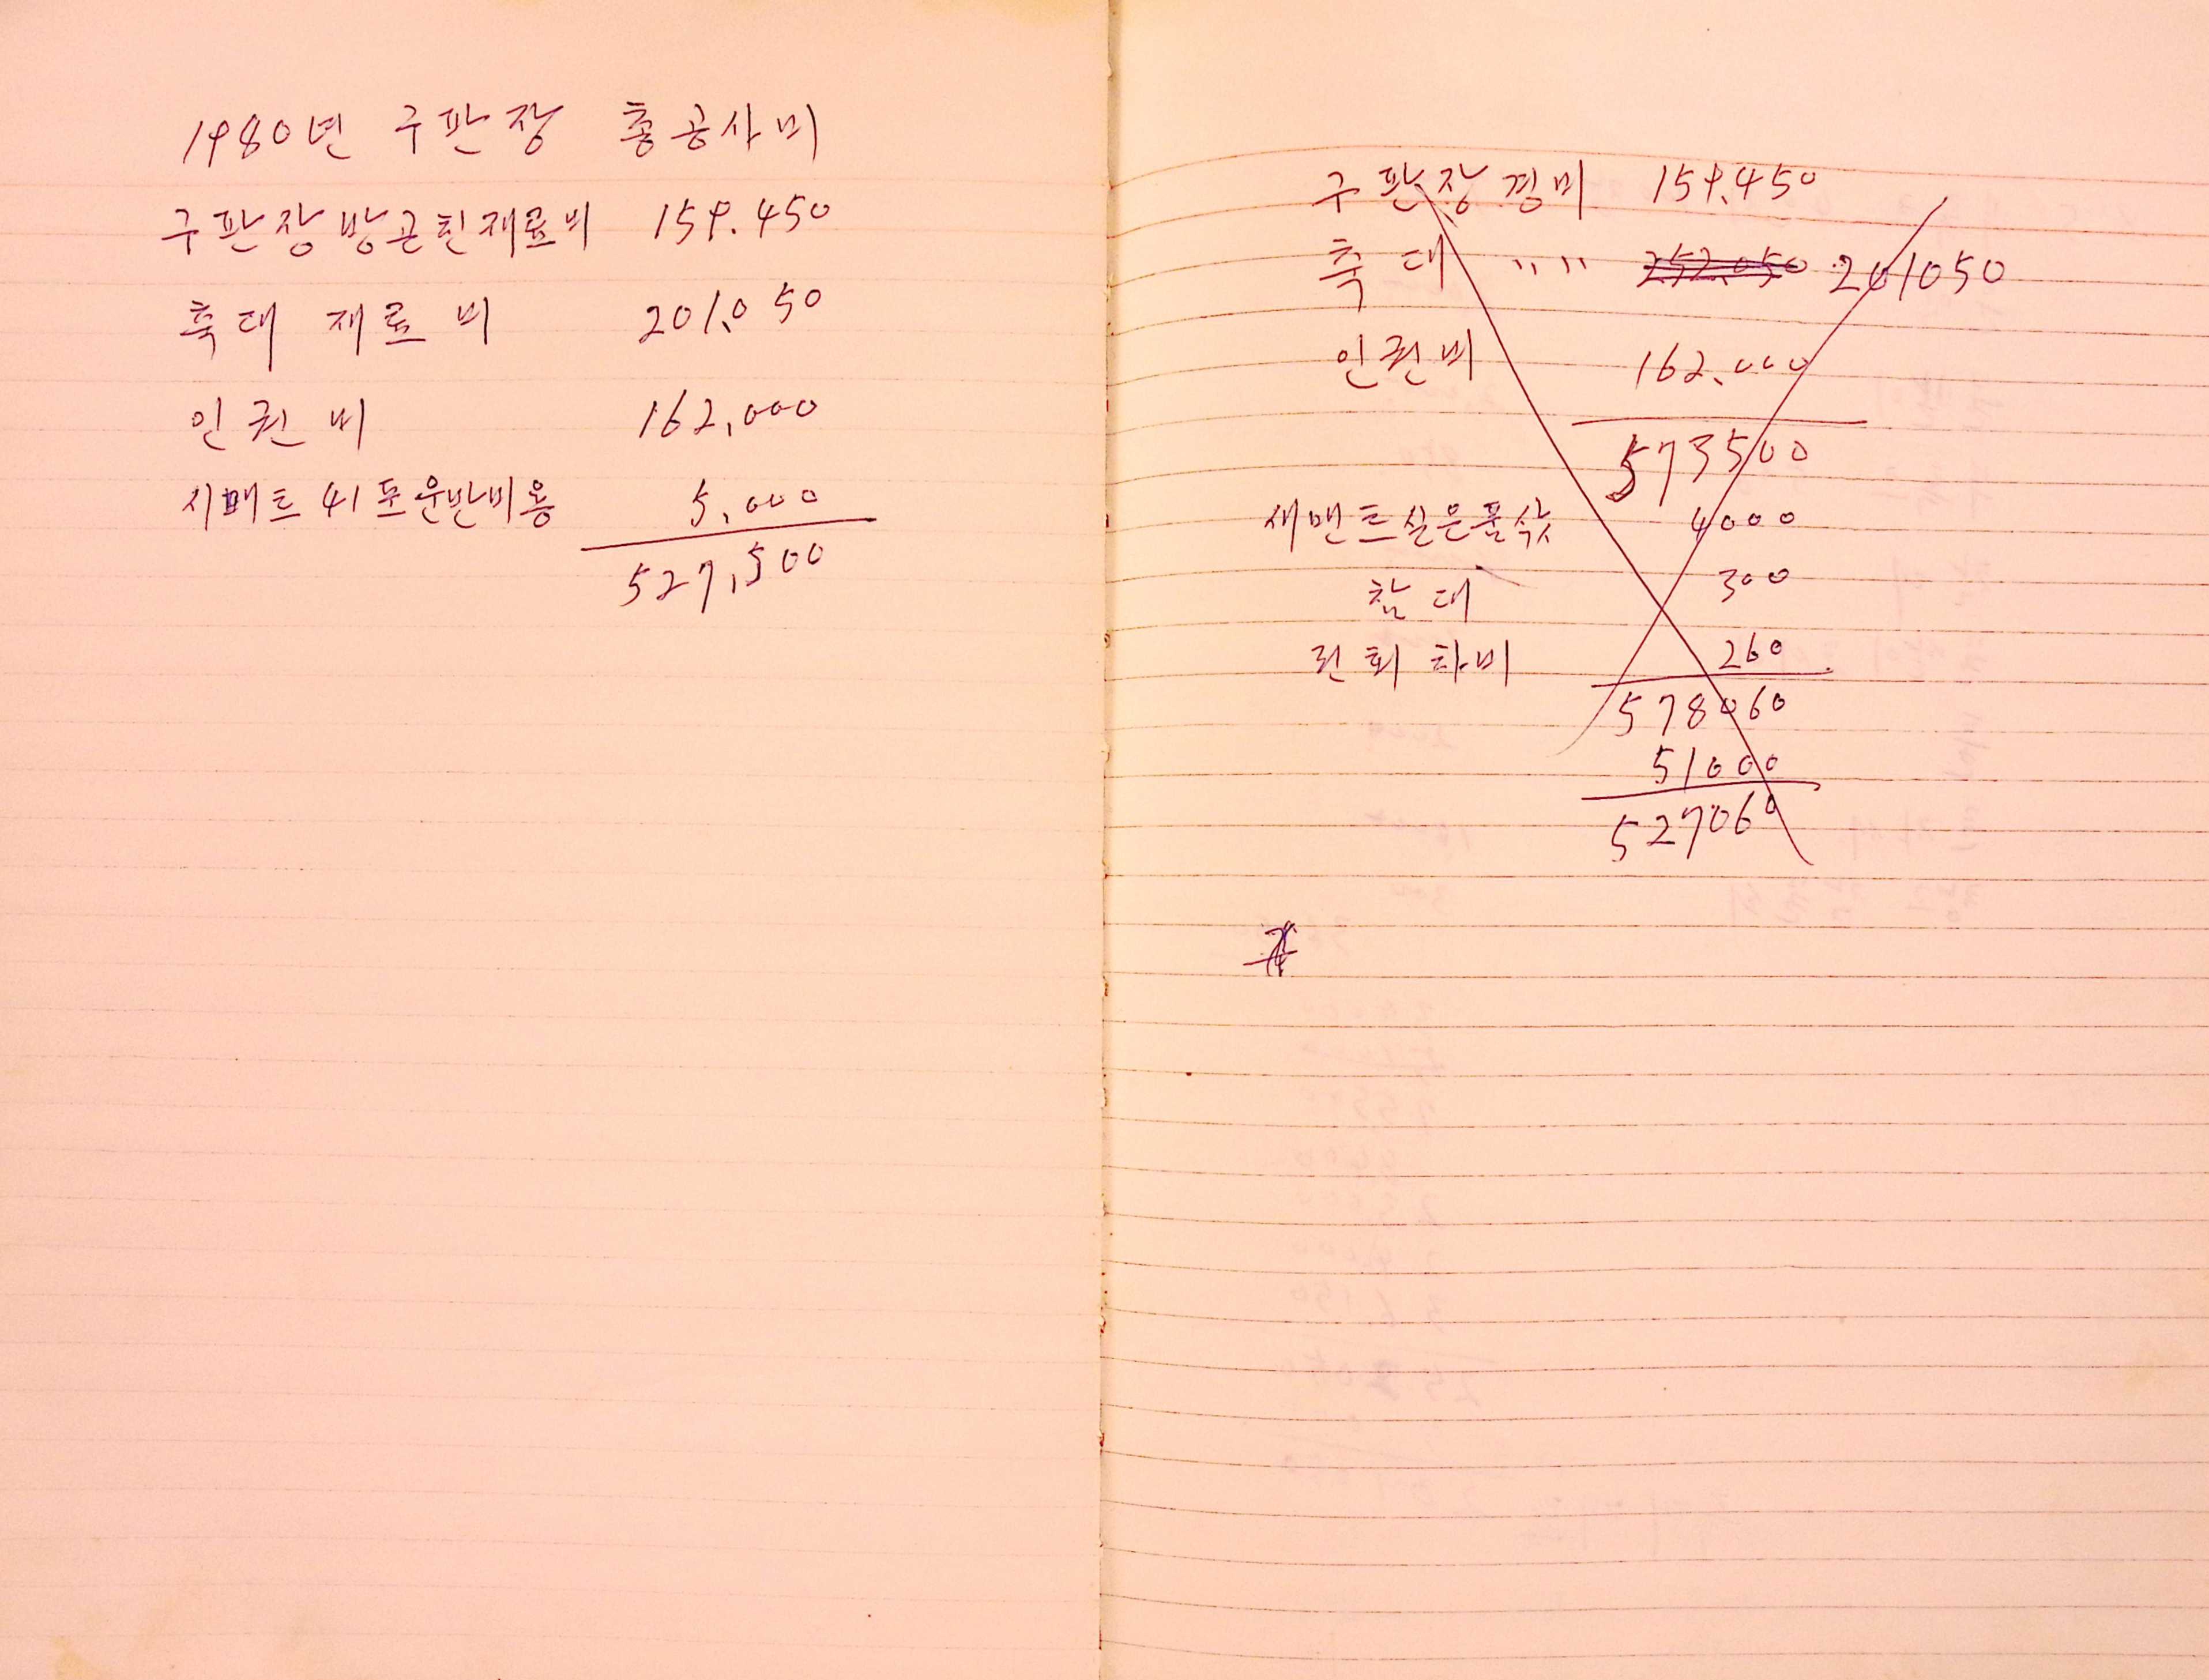 1980년 구판장 총공사비
구판장방곤친재료비 159.450
축대 재료비 201.050
인권비 162,000
시메트 41포운반비용 5,000
527,500
구판장경비 159.450
축대 〃〃 252.050 201050
인권비 162.000
573500
새맨트실은품삯 4000
참대 300
전회차비 260
578060
51000
527060